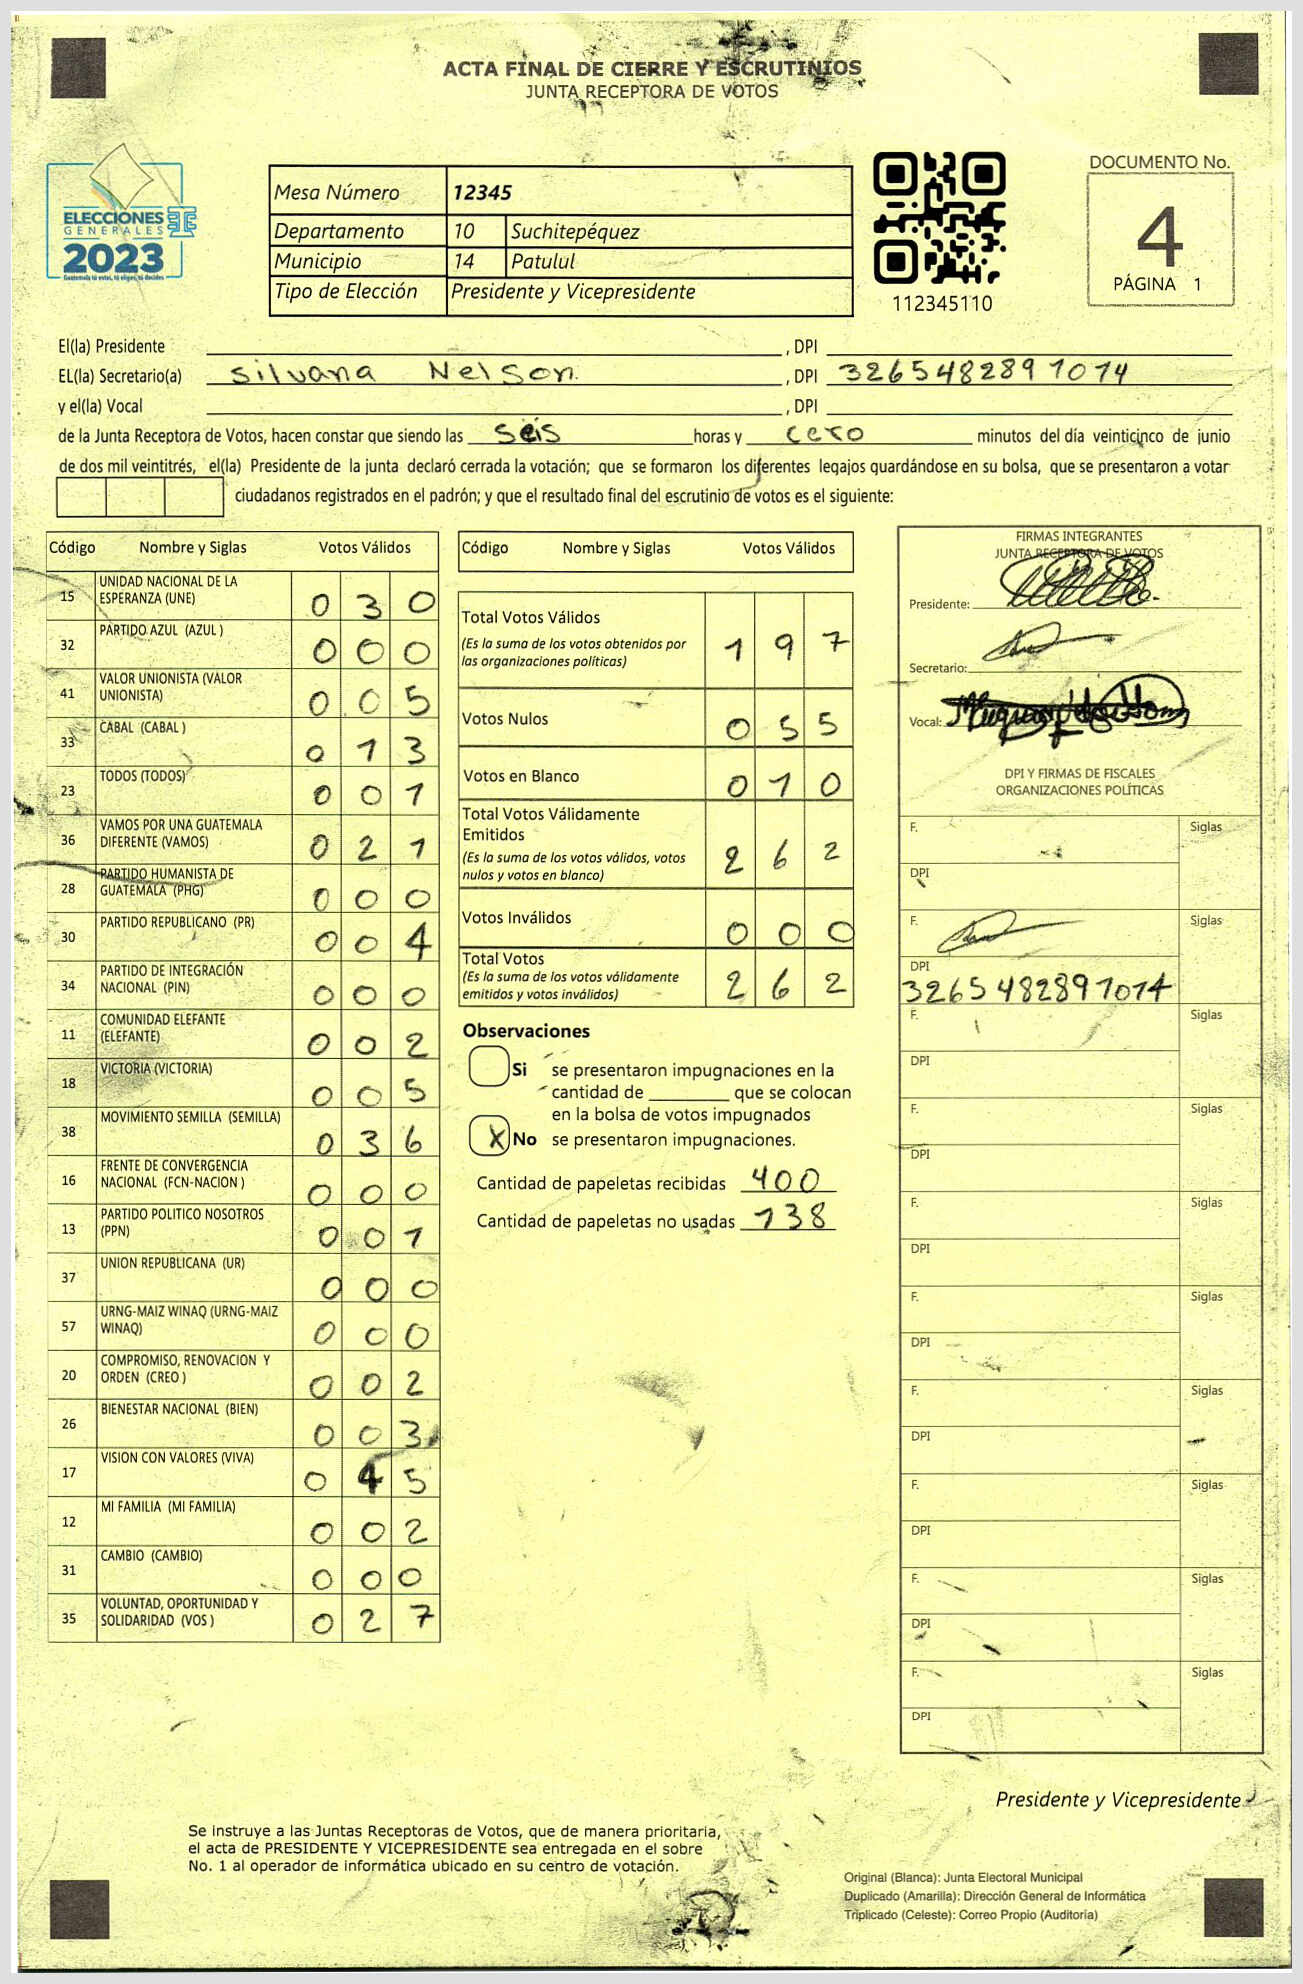 ACTA FINAL DE CIERRE Y ESCRUTINIOS
JUNTA RECEPTORA DE VOTOS
ELECCIONES
GENERALES
2023
Guatemala tú estás, tú eliges, tú decides
Mesa Número 12345
Departamento 10 Suchitepéquez
Municipio 14 Patulul
Tipo de Elección Presidente y Vicepresidente
112345110
DOCUMENTO No.
4
PÁGINA 1
El(la) Presidente , DPI
EL(la) Secretario(a) Silvana Nelson. , DPI 3265482897074
y el(la) Vocal , DPI
de la Junta Receptora de Votos, hacen constar que siendo las seis horas y cero minutos del día veinticinco de junio
de dos mil veintitrés, el(la) Presidente de la junta declaró cerrada la votación; que se formaron los diferentes legajos guardándose en su bolsa, que se presentaron a votar
ciudadanos registrados en el padrón; y que el resultado final del escrutinio de votos es el siguiente:
Código Nombre y Siglas Votos Válidos
15 UNIDAD NACIONAL DE LA ESPERANZA (UNE) 0 3 0
32 PARTIDO AZUL (AZUL ) 0 0 0
41 VALOR UNIONISTA (VALOR UNIONISTA) 0 0 5
33 CABAL (CABAL ) 0 1 3
23 TODOS (TODOS) 0 0 1
36 VAMOS POR UNA GUATEMALA DIFERENTE (VAMOS) 0 2 1
28 PARTIDO HUMANISTA DE GUATEMALA (PHG) 0 0 0
30 PARTIDO REPUBLICANO (PR) 0 0 4
34 PARTIDO DE INTEGRACIÓN NACIONAL (PIN) 0 0 0
11 COMUNIDAD ELEFANTE (ELEFANTE) 0 0 2
18 VICTORIA (VICTORIA) 0 0 5
38 MOVIMIENTO SEMILLA (SEMILLA) 0 3 6
16 FRENTE DE CONVERGENCIA NACIONAL (FCN-NACION ) 0 0 0
13 PARTIDO POLITICO NOSOTROS (PPN) 0 0 1
37 UNION REPUBLICANA (UR) 0 0 0
57 URNG-MAIZ WINAQ (URNG-MAIZ WINAQ) 0 0 0
20 COMPROMISO, RENOVACION Y ORDEN (CREO ) 0 0 2
26 BIENESTAR NACIONAL (BIEN) 0 0 3
17 VISION CON VALORES (VIVA) 0 4 5
12 MI FAMILIA (MI FAMILIA) 0 0 2
31 CAMBIO (CAMBIO) 0 0 0
35 VOLUNTAD, OPORTUNIDAD Y SOLIDARIDAD (VOS ) 0 2 7
Código Nombre y Siglas Votos Válidos
Total Votos Válidos 1 9 7
(Es la suma de los votos obtenidos por
las organizaciones políticas)
Votos Nulos 0 5 5
Votos en Blanco 0 1 0
Total Votos Válidamente
Emitidos 2 6 2
(Es la suma de los votos válidos, votos
nulos y votos en blanco)
Votos Inválidos 0 0 0
Total Votos 2 6 2
(Es la suma de los votos válidamente
emitidos y votos inválidos)
Observaciones
Si se presentaron impugnaciones en la
cantidad de ________ que se colocan
en la bolsa de votos impugnados
X No se presentaron impugnaciones.
Cantidad de papeletas recibidas 400
Cantidad de papeletas no usadas 138
FIRMAS INTEGRANTES
JUNTA RECEPTORA DE VOTOS
Presidente:
Secretario:
Vocal:
DPI Y FIRMAS DE FISCALES
ORGANIZACIONES POLÍTICAS
F. Siglas
DPI
F. Siglas
DPI
3265482897074
F. Siglas
DPI
F. Siglas
DPI
F. Siglas
DPI
F. Siglas
DPI
F. Siglas
DPI
F. Siglas
DPI
F. Siglas
DPI
F. Siglas
DPI
Presidente y Vicepresidente
Se instruye a las Juntas Receptoras de Votos, que de manera prioritaria,
el acta de PRESIDENTE Y VICEPRESIDENTE sea entregada en el sobre
No. 1 al operador de informática ubicado en su centro de votación.
Original (Blanca): Junta Electoral Municipal
Duplicado (Amarilla): Dirección General de Informática
Triplicado (Celeste): Correo Propio (Auditoría)